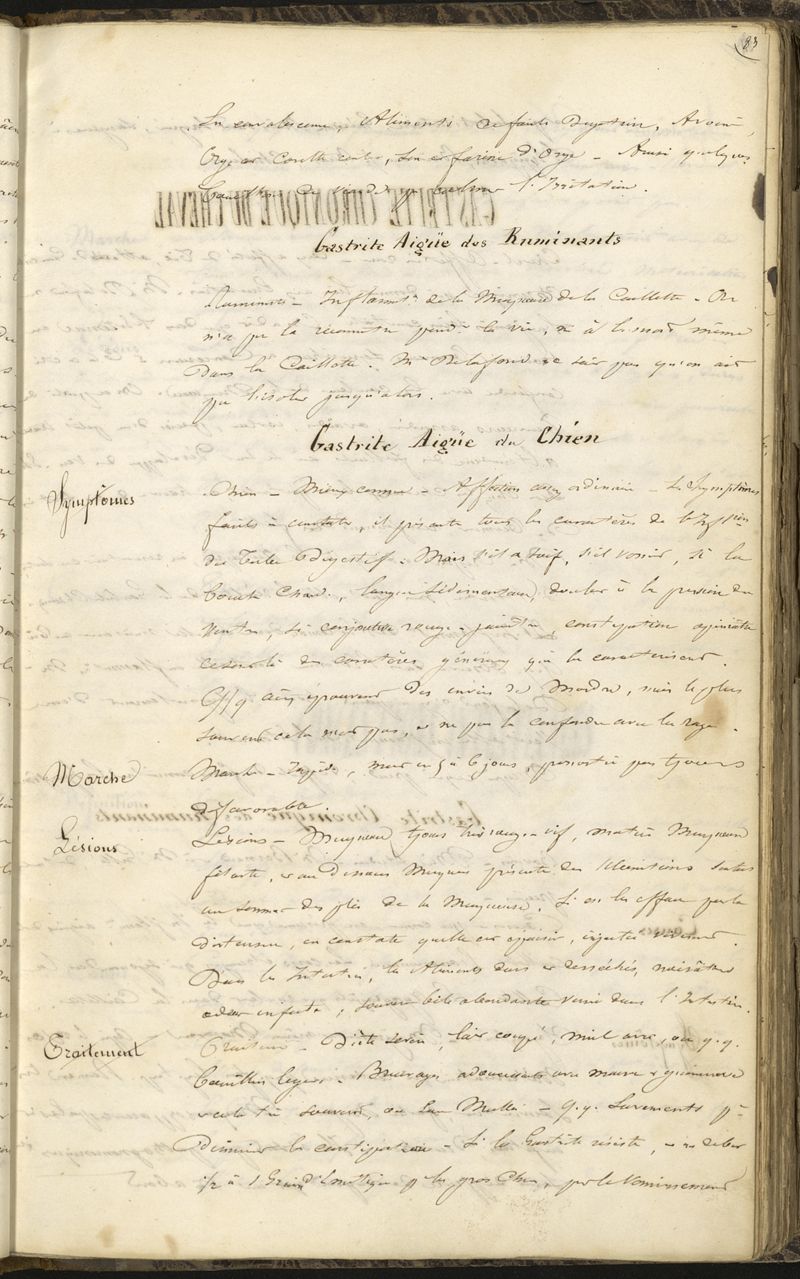 83
En convalescence, Aliments de facile Digestion, Avoine,
Orge et Carotte cuite, Son et farine d'Orge - Aussi quelques
l'Irritation.
Gastrite Aigüe des Ruminants
Ruminants - Inflamont de la Muqueuse de la Caillette - On
n'a pu la reconnaitre pendt la vie, ni à la mort même
Dans la Caillette. Mr Delafond ne sait pas qu'on ait
pu l'isoler jusqu'alors.
Gastrite Aigüe du Chien
Symptômes
Chien - Mieux connue - Affection assez ordinaire - Les Symptômes
faciles à constater, il présente tous les caractères de l'Infl
du Tube Digestif. Mais s'il a soif, s'il vomit, si la
bouche Chaude, langue Sédimenteuse, douleur à la pression du
Ventre, si conjonctive rouge - jaunâtre, constipation opiniâtre
ce sont là des caractères généraux qui la caractérisent.
éprouvent des envies de Mordre, mais le plus
souvent cela n'est pas, et ne pas la confondre avec la rage.
Marche
Marche - Rapide, meurt en 5 à 6 jours, pas tjours
défavorable.
Lésions
Lésions - Muqueuse tjours très rouge - vif, matière Muqueuse
fétide, et au Dessous Muqueuse présente des Ulcérations
au sommet des plis de la Muqueuse. Si on les efface par la
distension, on constate qu'elle est épaissie, injectée
Dans les Intestins, les Aliments durs et desséchés, noirâtres
odeur infecte, souvent bile abondante dans l'Intestin.
Traitement
Traitement - Diète sévère, lait coupé, miel avec, ou q.q.
bouillies légères - Breuvages adoucissants avec mauve et guimauve
souvent, ou Eau Miellée - q.q. Lavements pr
Diminuer la constipation - Si la Gastrite résiste,
1/2 à 1 Grain d'Emétique pr les gros Chiens, par le Vomissement